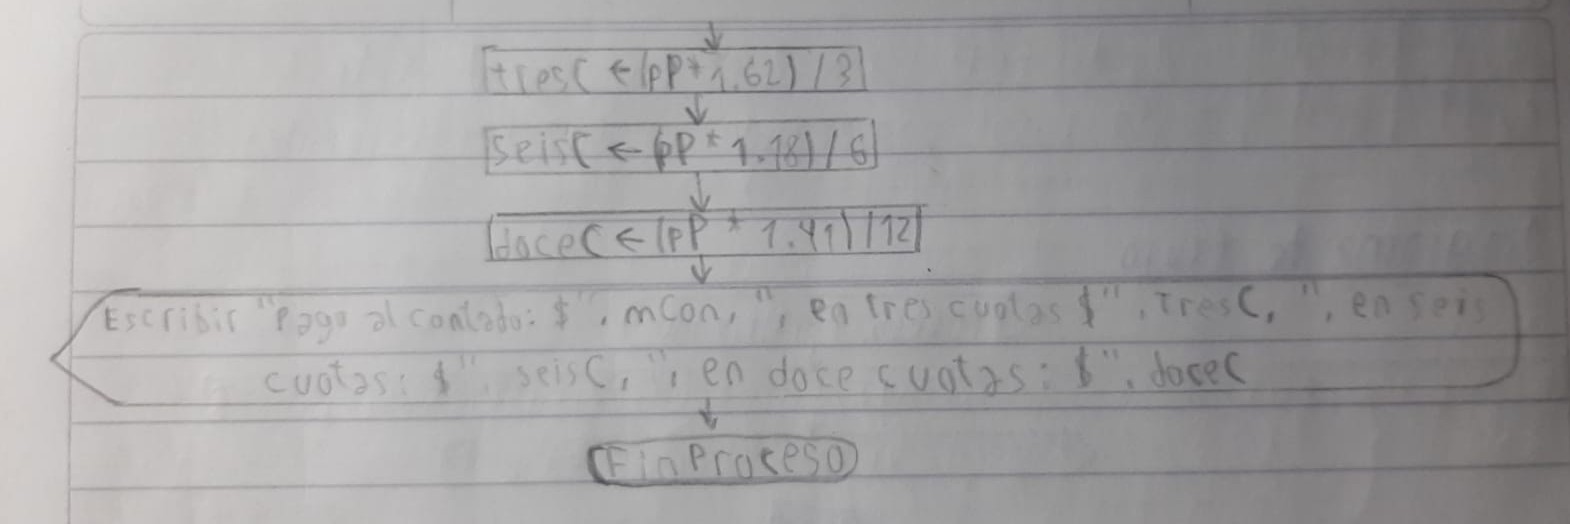 tresC ← (pP * 1.62) / 3
seisC ← (pP * 1.18) / 6
doceC ← (pP * 1.41) / 12
Escribir "Pago al contado: $", mCon, ", en tres cuotas $", TresC, ", en seis
cuotas: $", seisC, ", en doce cuotas: $", doceC
FinProceso